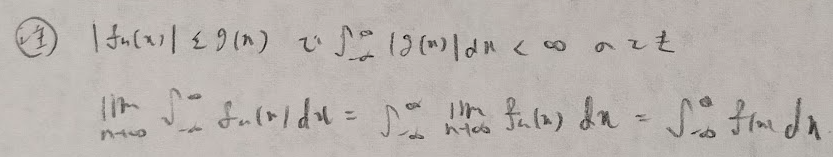 注 |fn(x)| ≤ g(x) で ∫_{-∞}^{∞} |g(x)| dx < ∞ のとき
lim_{n→∞} ∫_{-∞}^{∞} fn(x) dx = ∫_{-∞}^{∞} lim_{n→∞} fn(x) dx = ∫_{-∞}^{∞} f(x) dx.